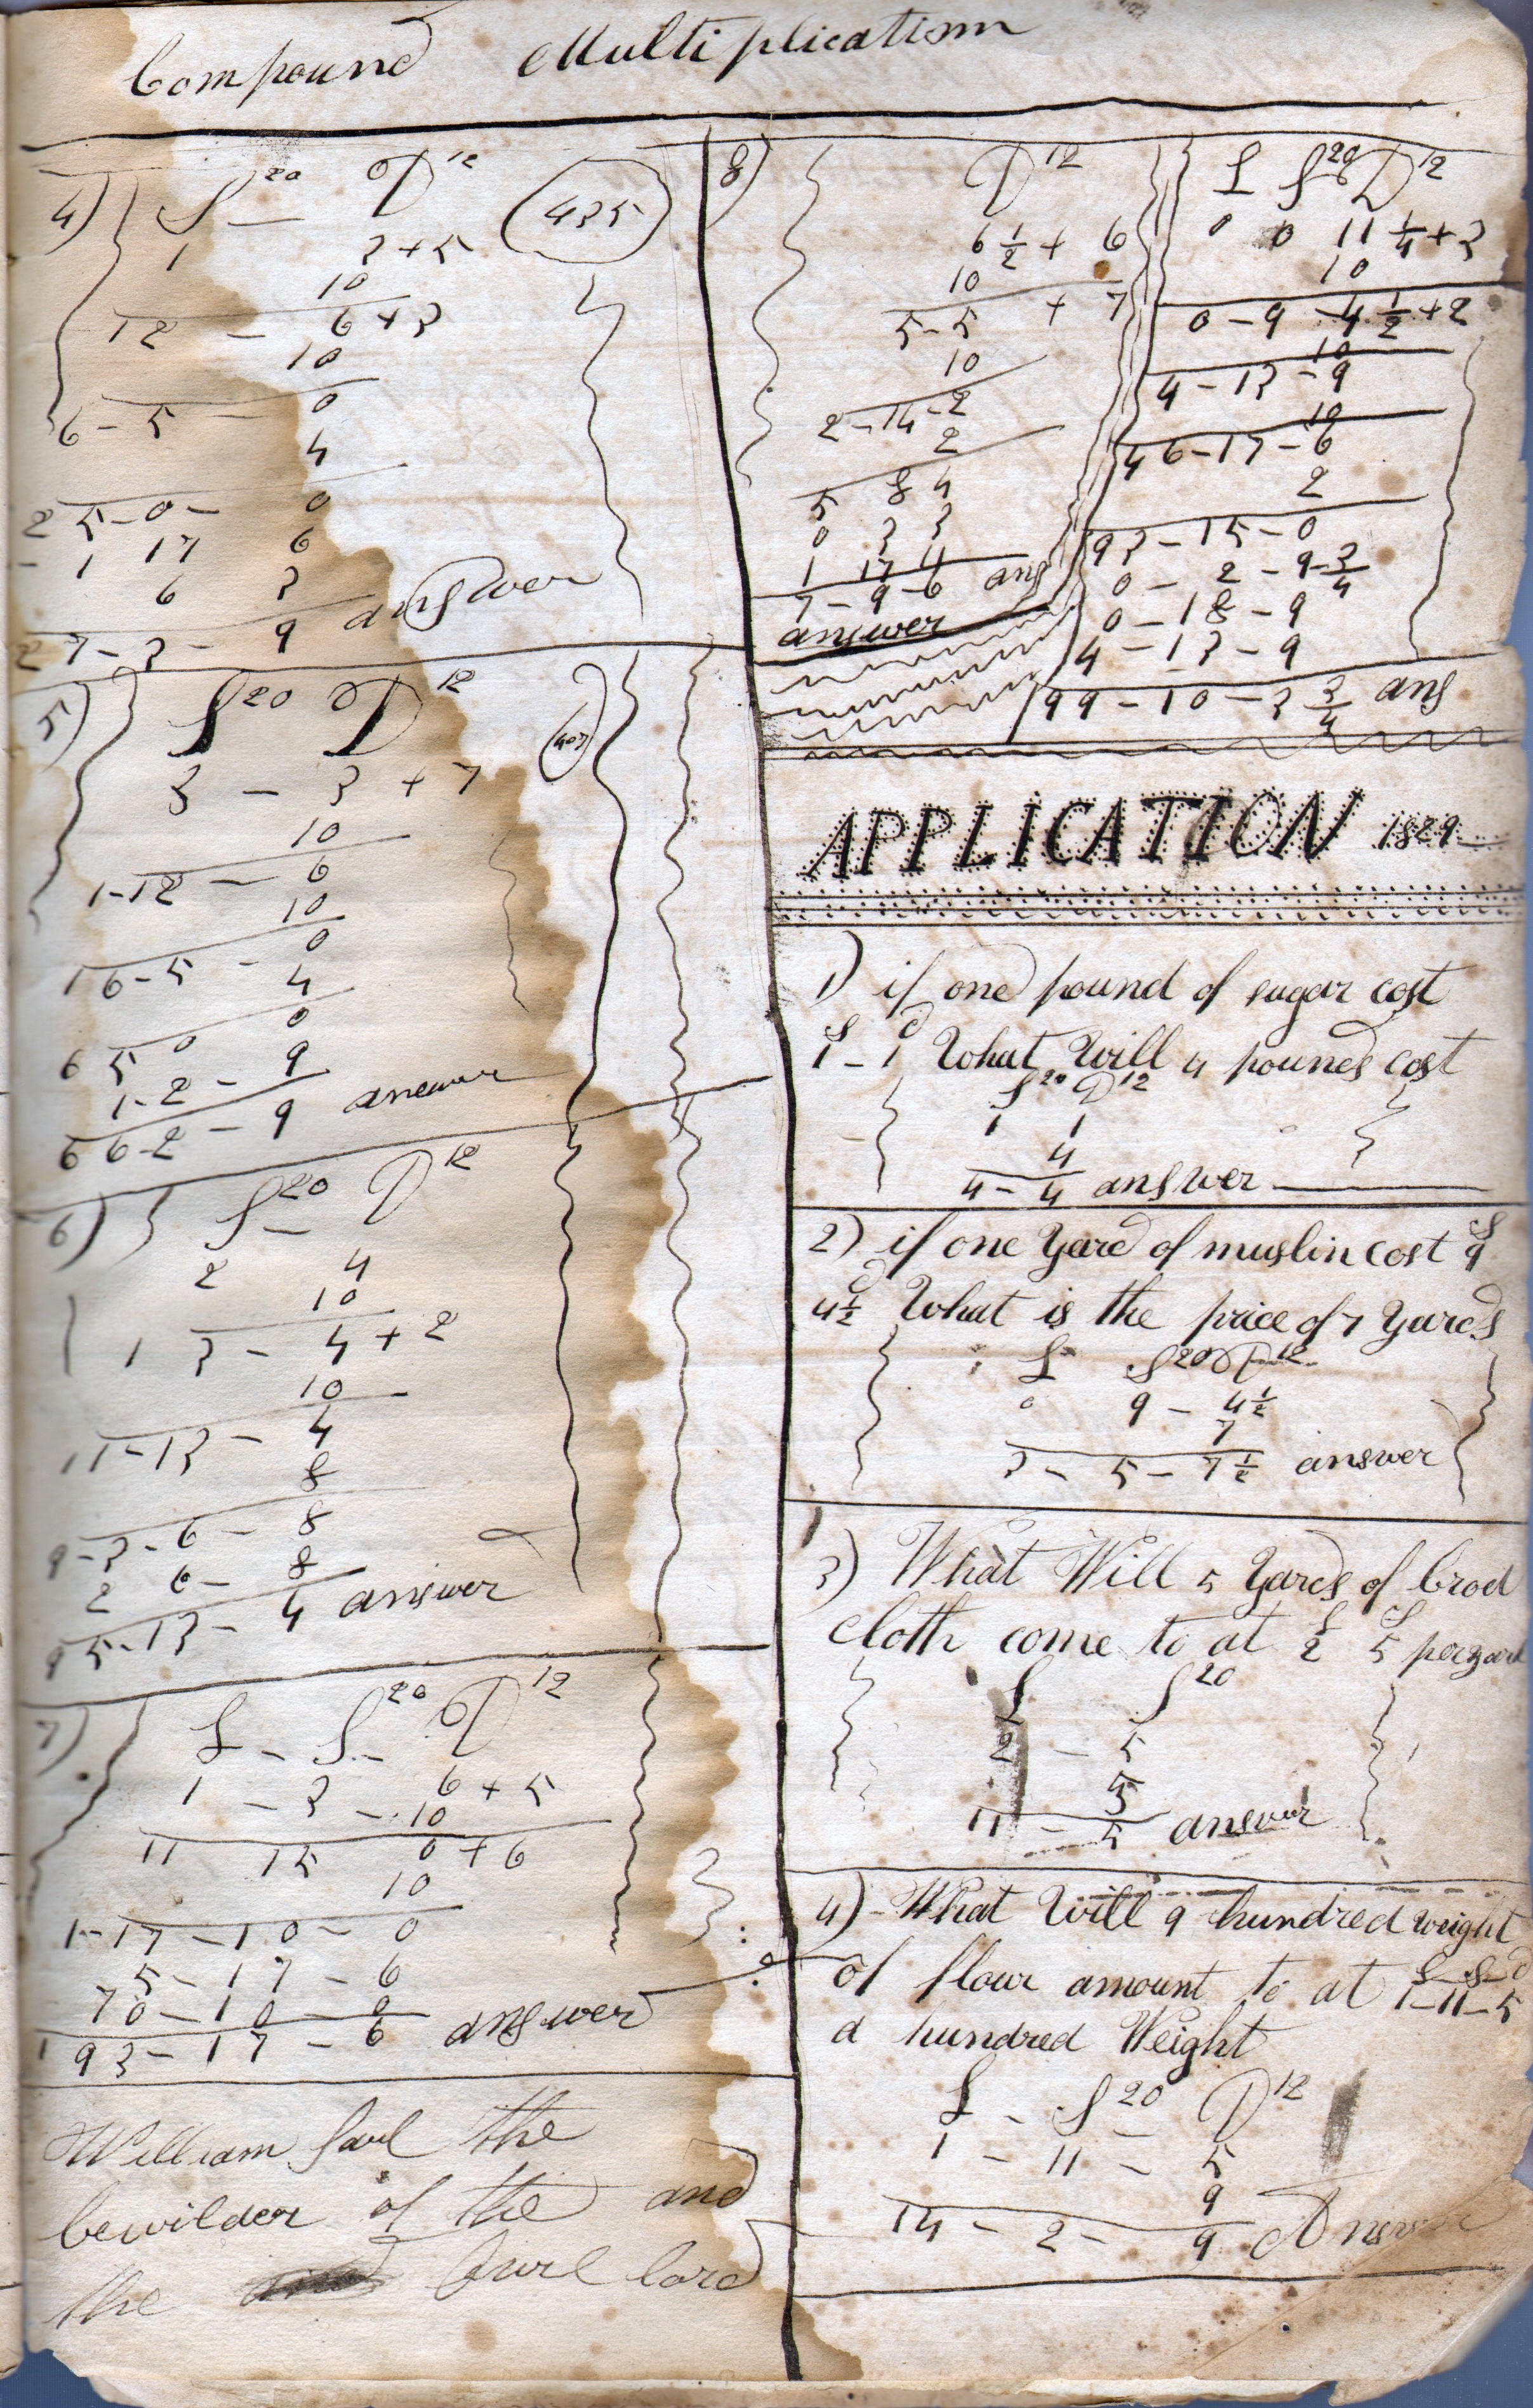 Compound Multiplication
4) S 20 D 12
435
1 3+5
10
12 — 6+3
10
6-5 — 0
4
25-0- 0
- 1 17 6
6 3
27-3- 9 answer
5) S 20 D 12
407
3 — 3+7
10
1-12 — 6
10
16-5 - 0
4
65 0 0
1-2- 9
66-2- 9 answer
6) S- 20 D 12
2 4
10
1 3- 4+2
10
11-13- 4
8
93-6- 8
2 6- 8
95-13- 4 answer
7) L - S- 20 D 12
1 - 3 - 6+5
10
11 15 0+6
10
1-17-10- 0
5-17-6
70-10-0
193-17-6 answer
William Saul the
bewilder of the and
the lord
8) D 12
6 1/2 + 6
10
5-5 + 7
10
2-14-2
2
5 8 4
0 3 3
1 17 11
7-9-6 ans
answer
L S 20 D 12
0 0 11 1/4+3
10
0-9-4 1/2+2
10
4-13-9
10
46-17-6
2
93-15-0
0-2-9 3/4
0-18-9
4-13-9
99-10-3 3/4 ans
APPLICATION 1829
1) if one pound of sugar cost
S d
1-1 What Will 4 pounds cost
S 20 D 12
1 1
4
4-4 answer
2) if one Yard of muslin cost S 9
d 4 1/2 What is the price of 7 Yards
L S 20 D 12
0 9 - 4 1/2
7
3 - 5 - 7 1/2 answer
3) What Will 5 Yards of brod
cloth come to at L 2 S 5 per yard
L S 20
2 - 5
5
11 - 5 answer
4) What Will 9 hundred weight
of flour amount to at L S d 1-11-5
a hundred Weight
L - S 20 D 12
1 - 11 - 5
9
14 - 2 - 9 Answer